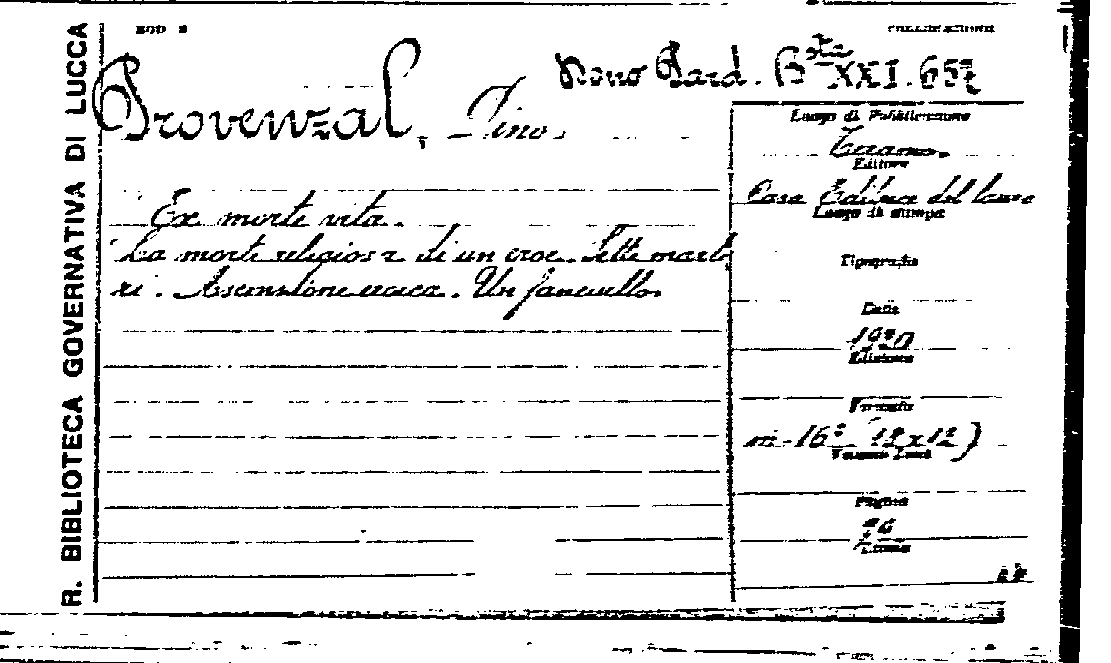 R. BIBLIOTECA GOVERNATIVA DI LUCCA
MOD
COLLOCAZIONE
Provenzal, Dino.
XXI. 657
Ex morte vita.
La morte religiosa di un eroe. Sette marto
ri. Ascensione eroica. Un fanciullo.
Luogo di Pubblicazione
Teramo.
Editore
Casa Editrice del lauro
Luogo di stampa
Tipografia
Data
1920
Edizione
Formato
in-16° (18x12)
Pagine